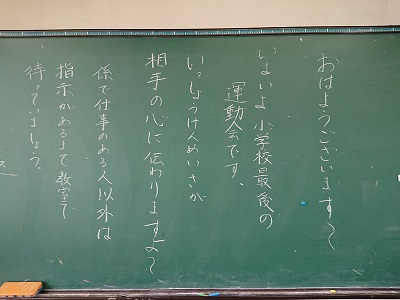 おはようございます
いよいよ小学校最後の
運動会です。
いっしょうけんめいさが
相手の心に伝わりますよ
係で仕事のある人以外は
指示があるまで教室で
待っていましょう。